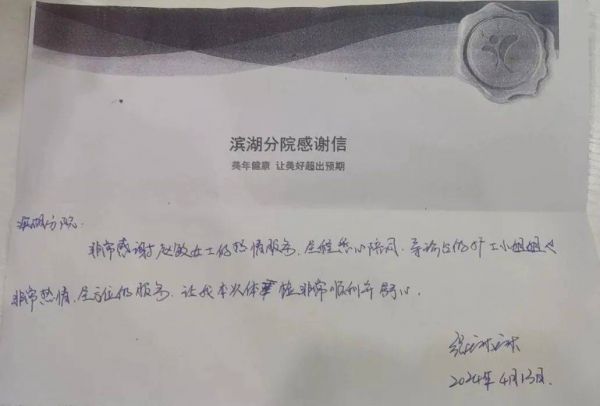 滨湖分院感谢信
美年健康 让美好超出预期
滨湖分院:
非常感谢赵敏女士的热情服务、全程热心陪同、导诊台的护士小姐姐也
非常热情、全方位的服务、让我本次体检非常顺利并舒心.
2024年4月13日.